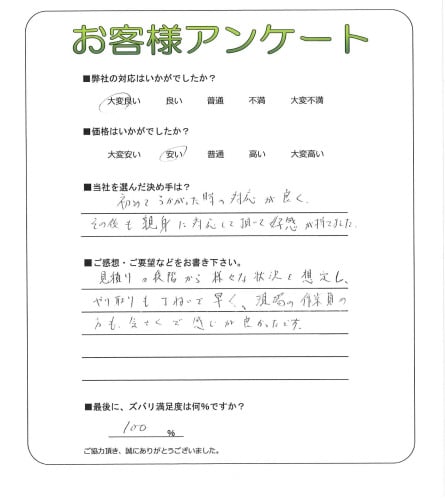 お客様アンケート
■弊社の対応はいかがでしたか？
大変良い 良い 普通 不満 大変不満
■価格はいかがでしたか？
大変安い 安い 普通 高い 大変高い
■当社を選んだ決め手は？
初めてうかがった時の対応が良く、
その後も親身に対応して頂いて好感が持てました。
■ご感想・ご要望などをお書き下さい。
見積りの段階から様々な状況を想定し、
やり取りもていねいで早く、現場の作業員の
方も、気さくで感じが良かったです。
■最後に、ズバリ満足度は何％ですか？
100 ％
ご協力頂き、誠にありがとうございました。